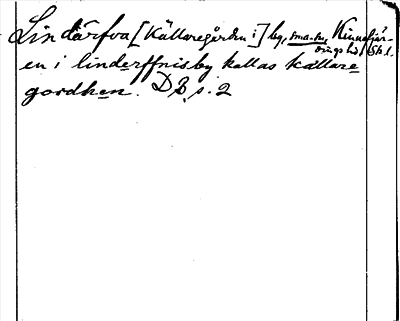 Lindärfva [Källaregården i] by, sma-sn, Kinnefjär-
dings hd, Sk. l.
en i linderffnisby kallas källare
gordhen. DB, s. 2